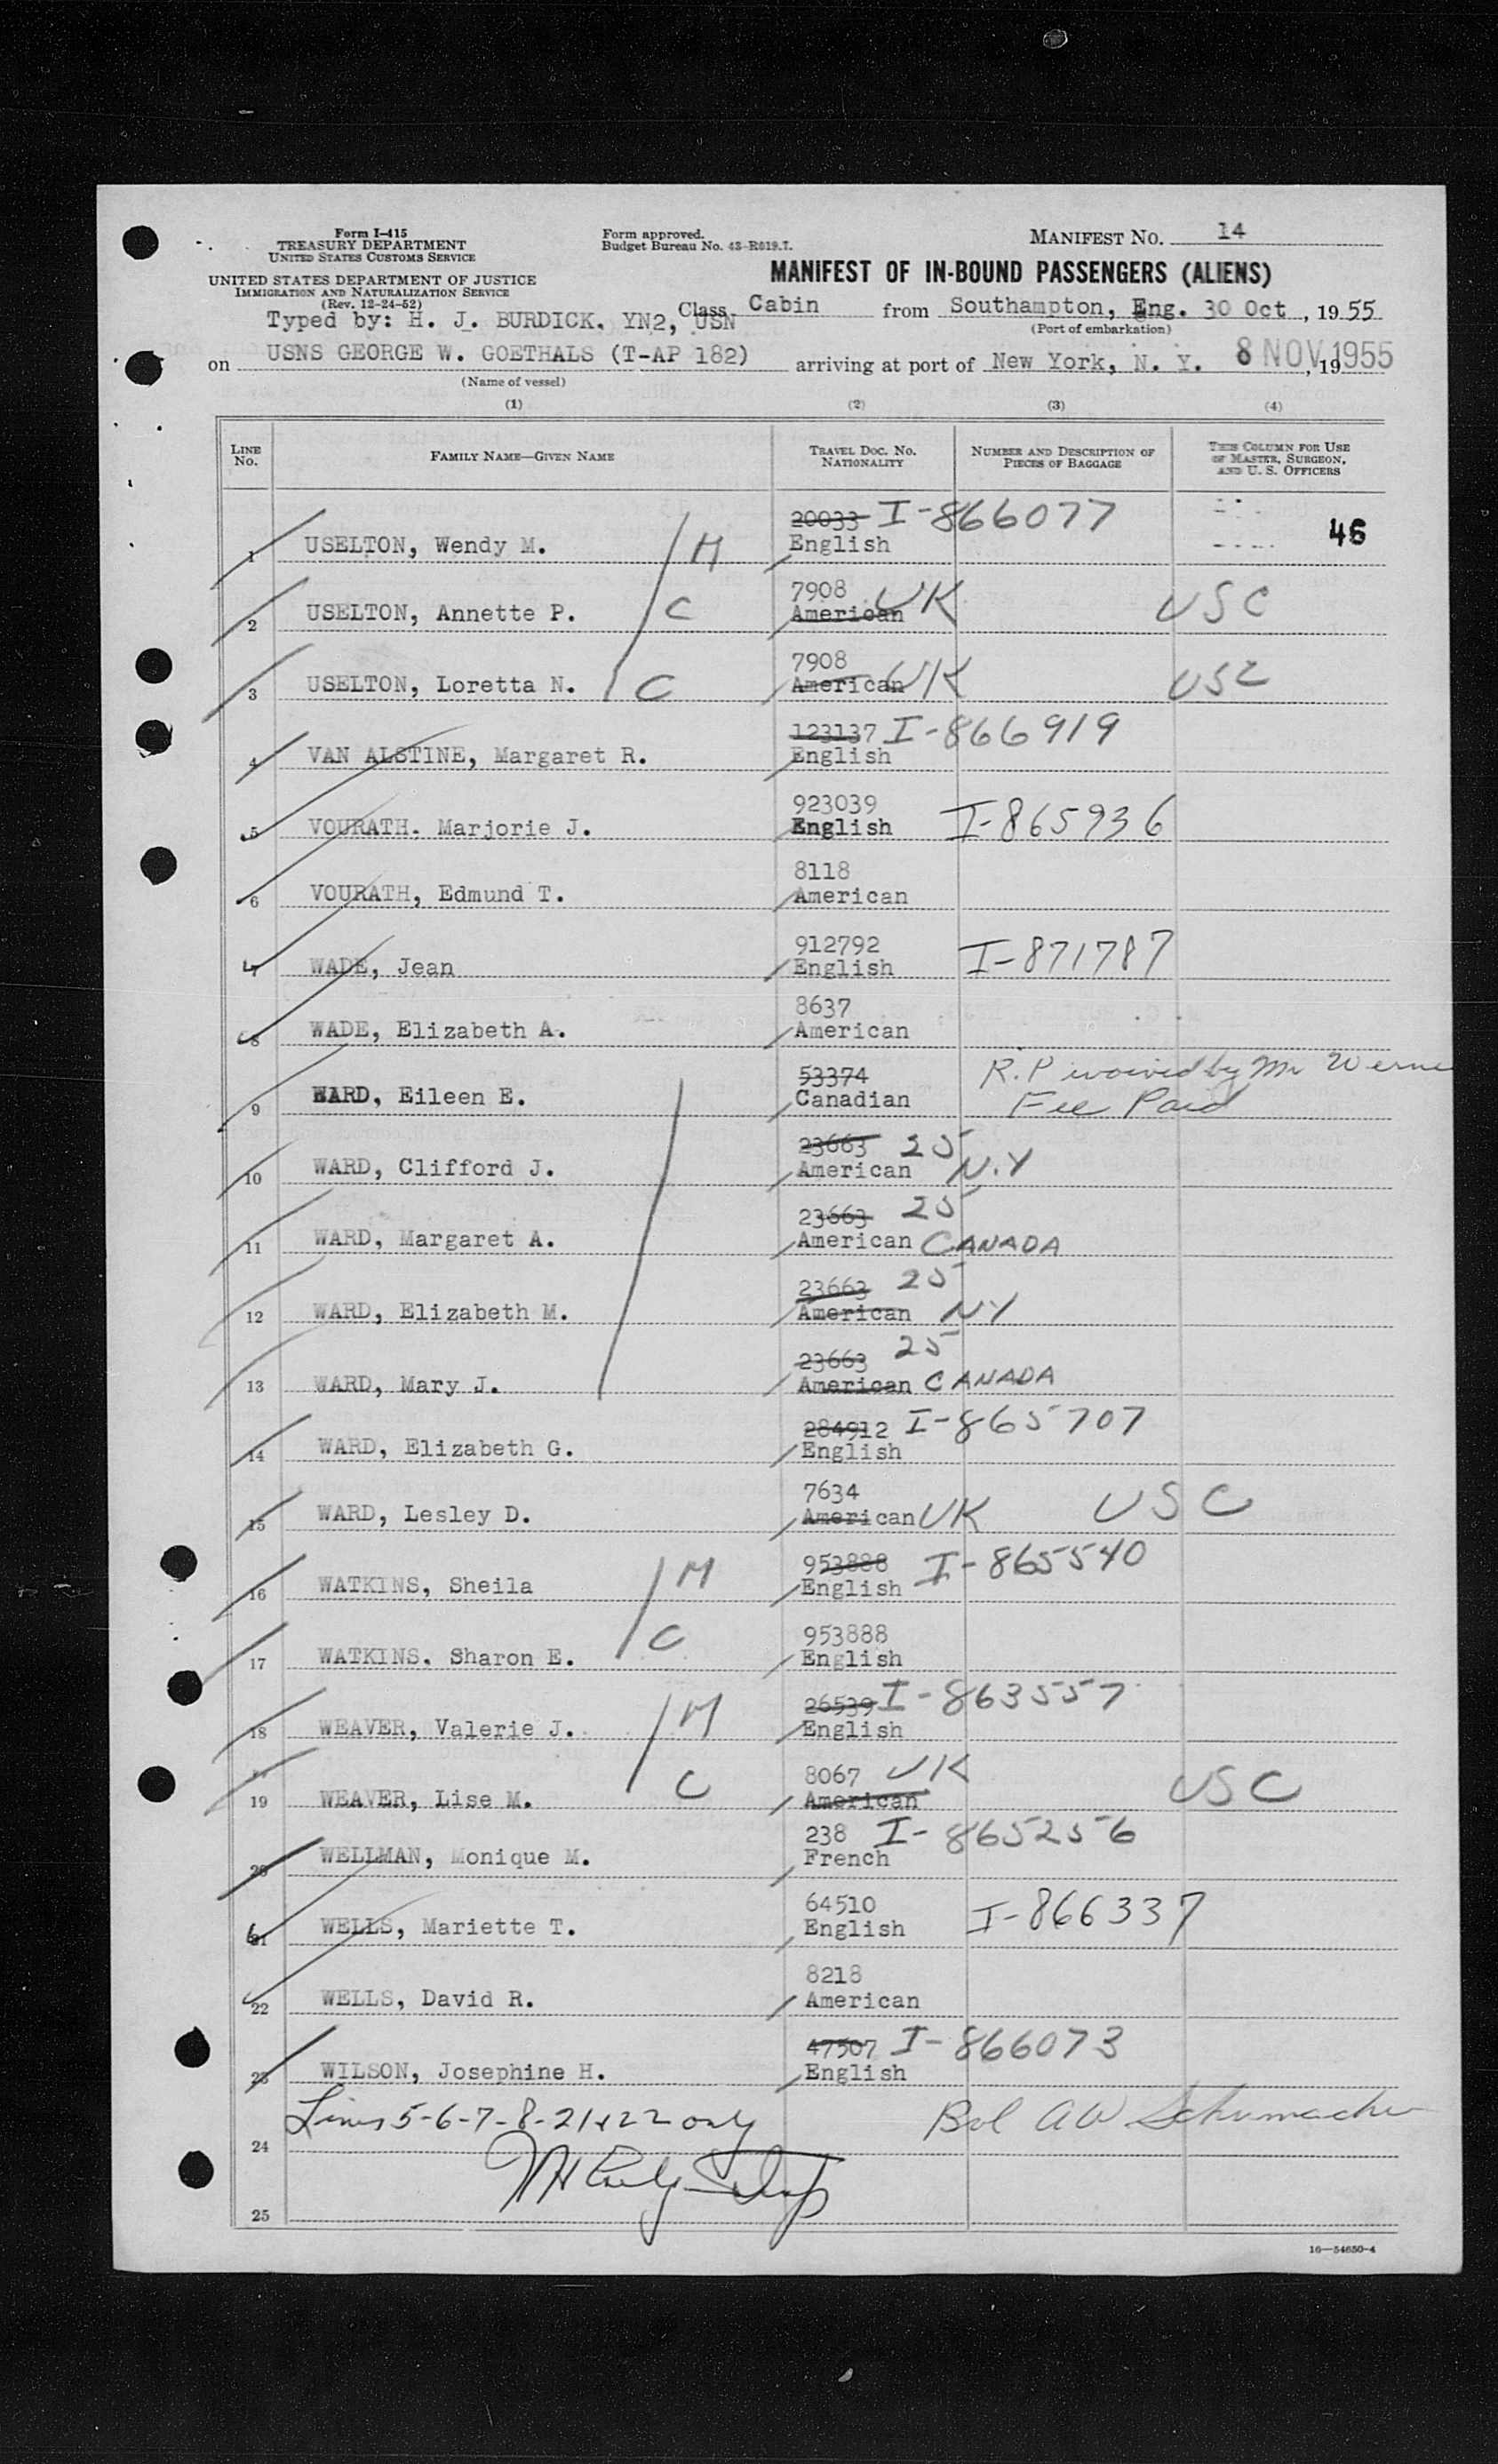 Form I-415
TREASURY DEPARTMENT
UNITED STATES CUSTOMS SERVICE
UNITED STATES DEPARTMENT OF JUSTICE
IMMIGRATION AND NATURALIZATION SERVICE
(Rev. 12-24-52)
Form approved.
Budget Bureau No. 43-R019.7.
MANIFEST NO. 14
MANIFEST OF IN-BOUND PASSENGERS (ALIENS)
Typed by: H. J. BURDICK, YN2, USN
Class Cabin from Southampton, Eng. 30 Oct, 1955
(Port of embarkation)
on USNS GEORGE W. GOETHALS (T-AP 182) arriving at port of New York, N. Y. 8 NOV, 19 1955
(Name of vessel)
(1) (2) (3) (4)
LINE NO. FAMILY NAME—GIVEN NAME TRAVEL DOC. NO. NATIONALITY NUMBER AND DESCRIPTION OF PIECES OF BAGGAGE THIS COLUMN FOR USE OF MASTER, SURGEON, AND U. S. OFFICERS
20033 I-866077
1 USELTON, Wendy M. M English 46
7908 UK
2 USELTON, Annette P. C American USC
7908
3 USELTON, Loretta N. C American UK USC
123137 I-866919
4 VAN ALSTINE, Margaret R. English
923039
5 VOURATH. Marjorie J. English I-865936
8118
6 VOURATH, Edmund T. American
912792
7 WADE, Jean English I-871787
8637
8 WADE, Elizabeth A. American
53374 R.P waived by Mr
9 WARD, Eileen E. Canadian Fee Paid
23663 25
10 WARD, Clifford J. American N.Y
23663 25
11 WARD, Margaret A. American CANADA
23663 25
12 WARD, Elizabeth M. American NY
23663 25
13 WARD, Mary J. American CANADA
284912 I-865707
14 WARD, Elizabeth G. English
7634
15 WARD, Lesley D. American UK USC
953888 I-865540
16 WATKINS, Sheila M English
953888
17 WATKINS. Sharon E. C English
26539 I-863557
18 WEAVER, Valerie J. M English
8067 UK
19 WEAVER, Lise M. C American USC
238 I-865256
20 WELLMAN, Monique M. French
64510
21 WELLS, Mariette T. English I-866337
8218
22 WELLS, David R. American
47507 I-866073
23 WILSON, Josephine H. English
Lines 5-6-7-8-21+22 only
24
25
16—54650-4